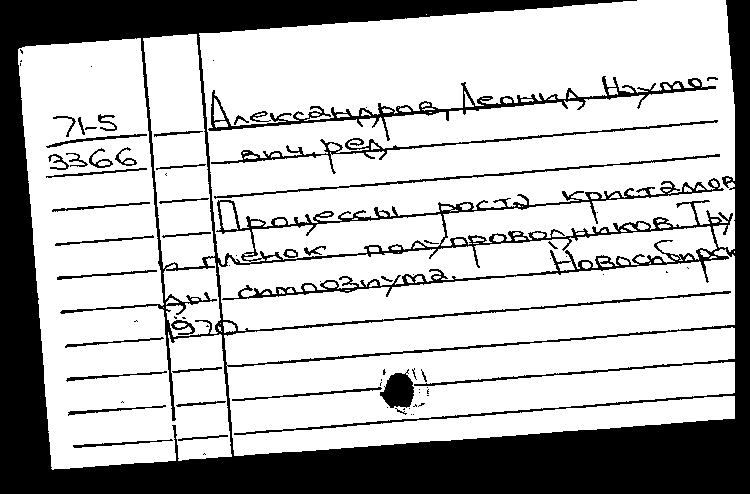 71-5
3366
Александров, Леонид Наумо-
вич, ред.
Процессы роста кристаллов
и пленок полупроводников. Тру-
ды симпозиума. Новосибирск
1970.